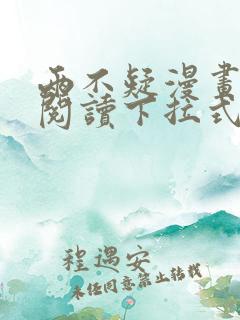 兩不疑漫畫
閱讀下拉式
程遇安
未经同意禁止转载